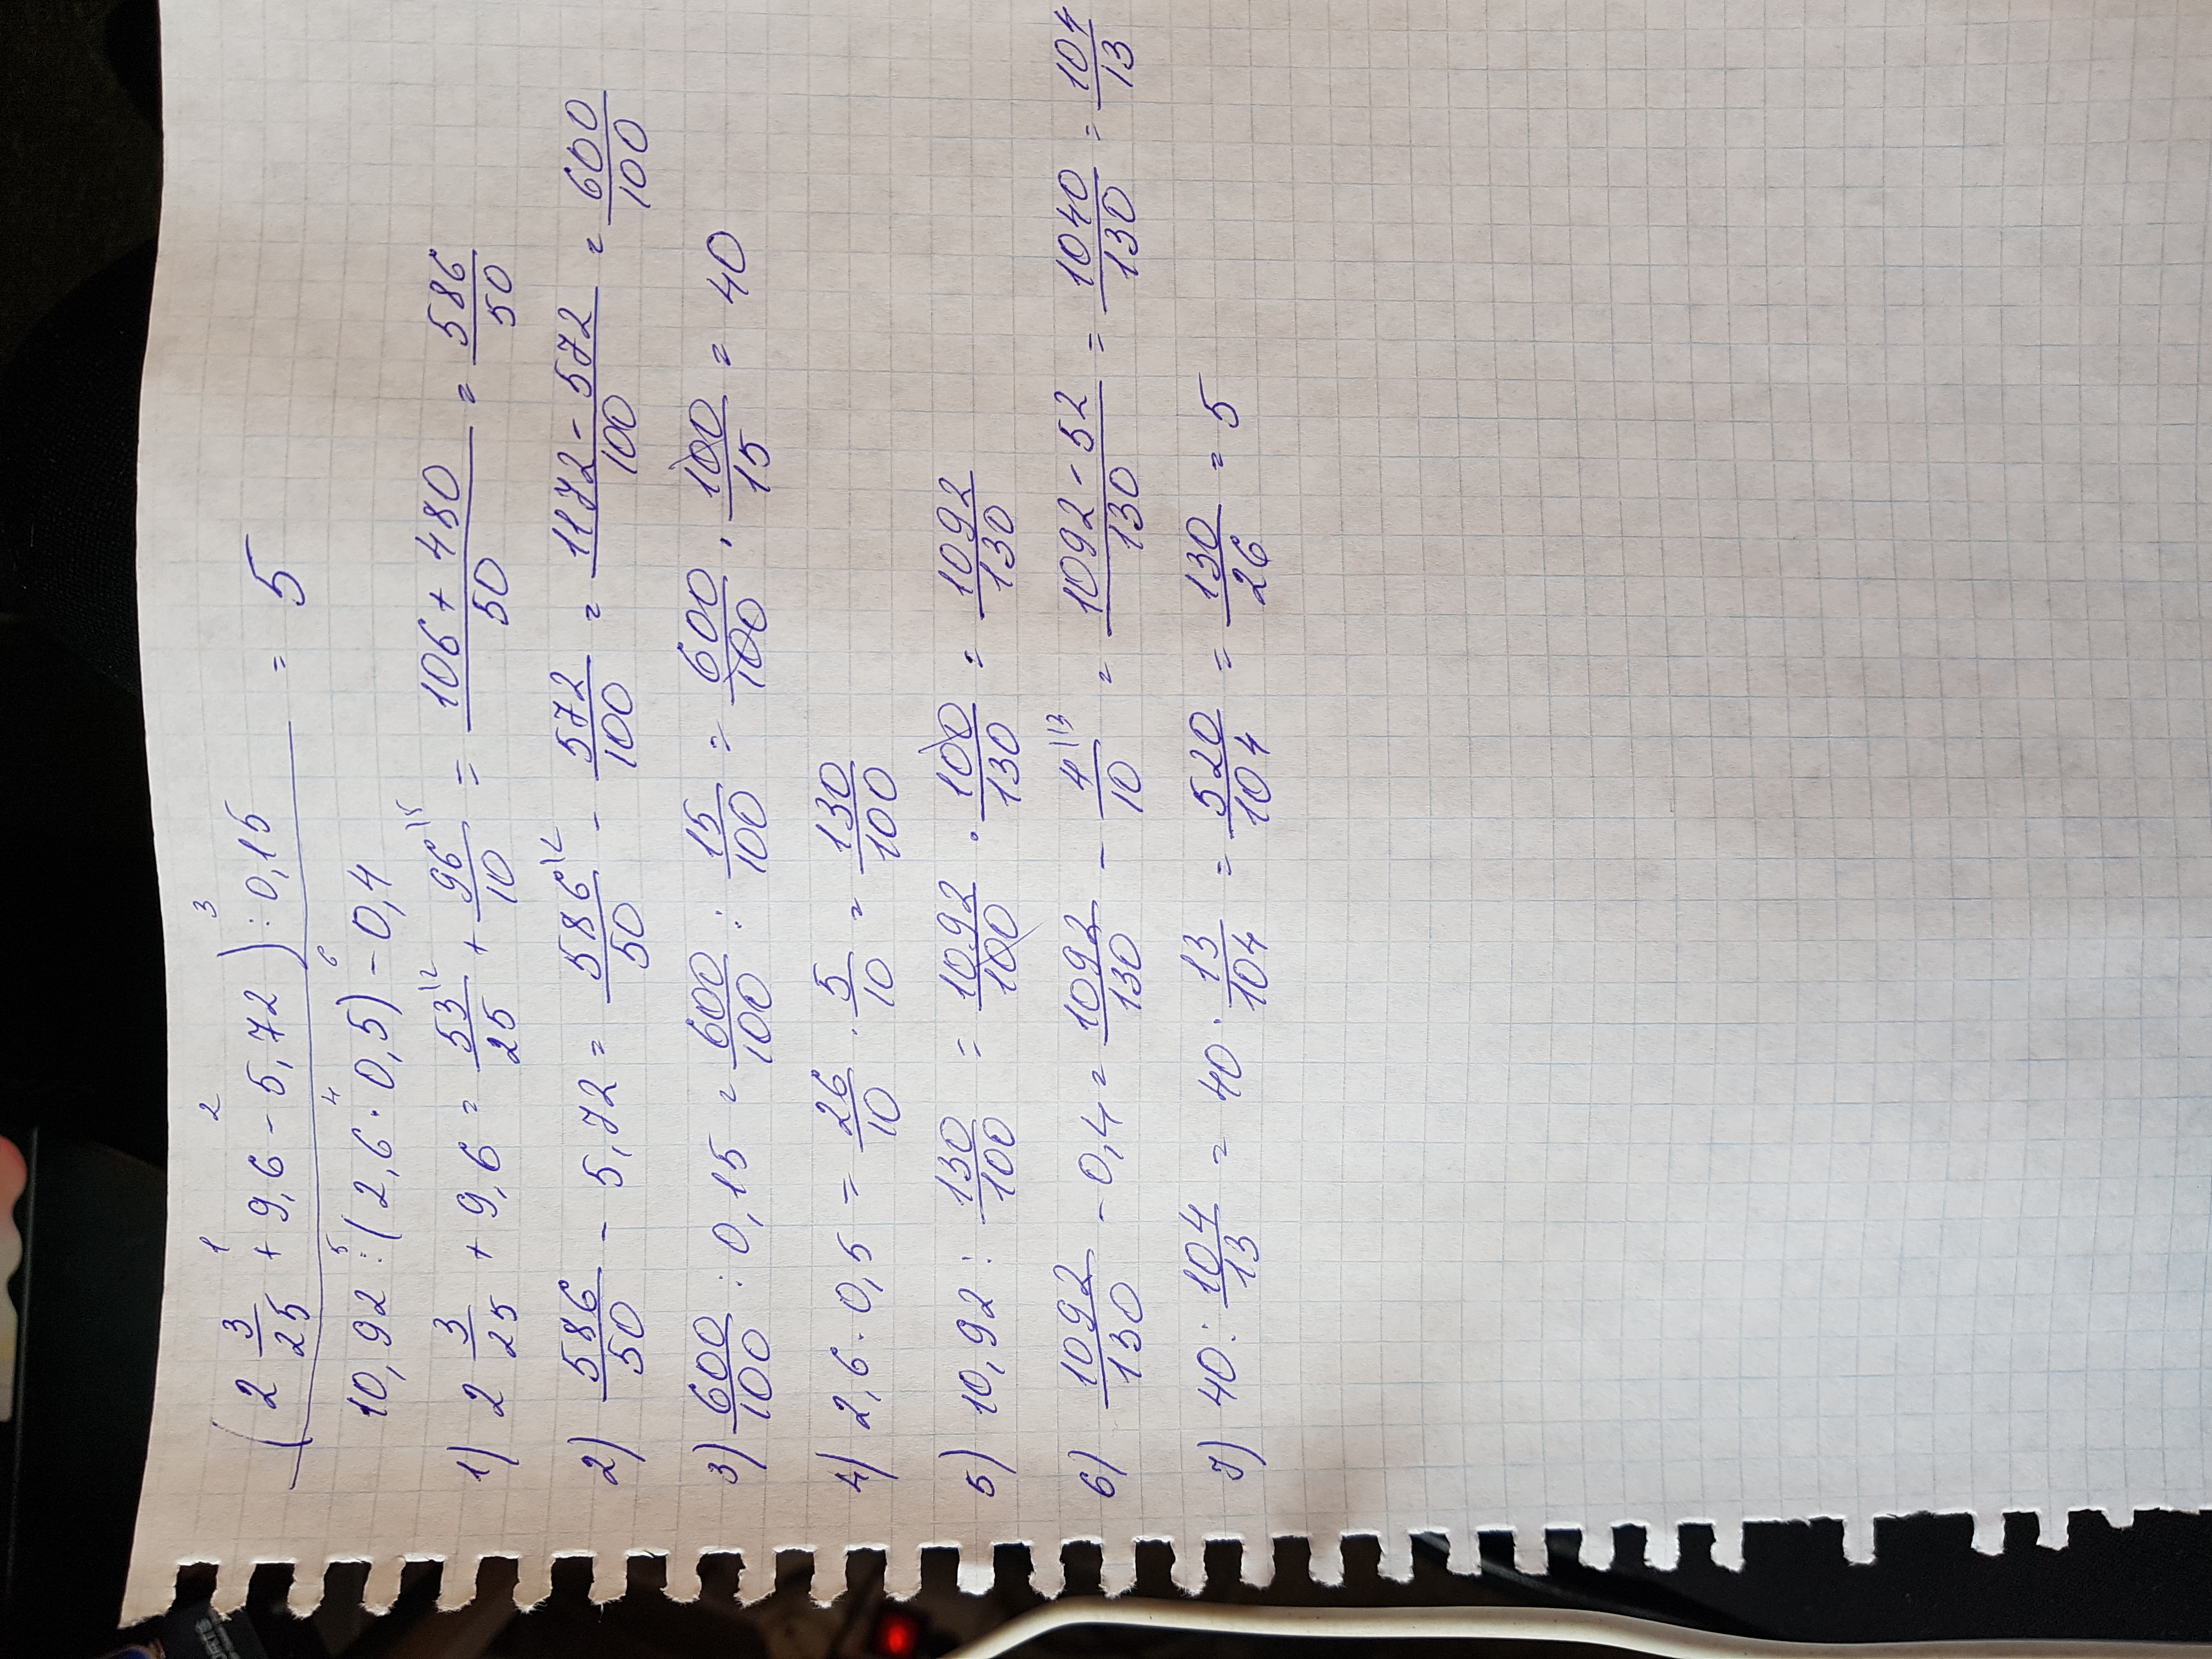 (2 3/25 +¹ 9,6 -² 5,72) :³ 0,15
———————————————— = 5
10,92 :⁵ (2,6 ·⁴ 0,5) -⁶ 0,4
1) 2 3/25 + 9,6 = 53\2/25 + 96\5/10 = (106 + 480)/50 = 586/50
2) 586/50 - 5,72 = 586\2/50 - 572/100 = (1172 - 572)/100 = 600/100
3) 600/100 : 0,15 = 600/100 : 15/100 = 600/100 · 100/15 = 40
4) 2,6 · 0,5 = 26/10 · 5/10 = 130/100
5) 10,92 : 130/100 = 1092/100 · 100/130 = 1092/130
6) 1092/130 - 0,4 = 1092/130 - 4\13/10 = (1092 - 52)/130 = 1040/130 = 104/13
7) 40 : 104/13 = 40 · 13/104 = 520/104 = 130/26 = 5